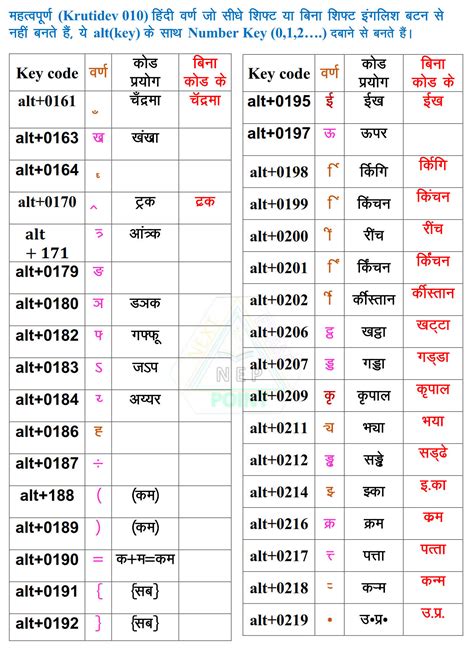 महत्वपूर्ण (Krutidev 010) हिंदी वर्ण जो सीधे शिफ्ट या बिना शिफ्ट इंगलिश बटन से
नहीं बनते हैं, ये alt(key) के साथ Number Key (0,1,2....) दबाने से बनते हैं।
Key code वर्ण कोड प्रयोग बिना कोड के
alt+0161 ँ चँद्रमा चॅद्रमा
alt+0163 ख खंखा
alt+0164
alt+0170 ट्रक
alt + 171 त्र आंत्रक
alt+0179 ङ
alt+0180 ञ डञक
alt+0182 फ् गफ्फू
alt+0183 ऽ जऽप
alt+0184 य् अय्यर
alt+0186 ह्
alt+0187 ÷
alt+188 ( (कम)
alt+0189 ) (कम)
alt+0190 = क+म=कम
alt+0191 { {सब}
alt+0192 } {सब}
Key code वर्ण कोड प्रयोग बिना कोड के
alt+0195 ई ईख ईख
alt+0197 ऊ ऊपर
alt+0198 र्कि र्किगि र्किगि
alt+0199 किंचन किंचन
alt+0200 रींच रींच
alt+0201 र्किंचन र्किंचन
alt+0202 र्कीस्तान र्कीस्तान
alt+0206 ट्ठ खट्ठा खट्‌टा
alt+0207 ड्ड गड्डा गड्‌डा
alt+0209 कृ कृपाल कृपाल
alt+0211 भ्या भया
alt+0212 ड्ढ सड्ढे सड्‌ढे
alt+0214 झ् इ्का इ.का
alt+0216 क्र क्रम क्रम
alt+0217 त्त् पत्ता पत्ता
alt+0218 कन्म कन्म
alt+0219 • उ•प्र• उ.प्र.
NEXT
NEP
POINT